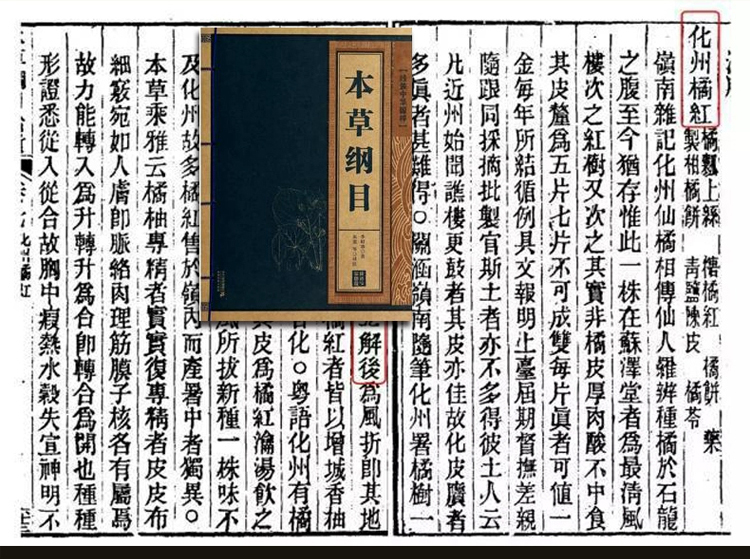 化州橘紅
橘瓤上絲
橘紅
橘餅
藥
製柑橘餅
青鹽陳皮
橘苓
嶺南雜記化州仙橘相傳仙人羅辨種橘於石龍
之腹至今猶存惟此一株在蘇澤堂者爲最淸風
樓次之紅樹又次之其實非橘皮厚肉酸不中食
其皮釐爲五片七片不可成雙每片眞者可值一
金每年所結循例具文報明上臺屆期督撫差親
隨跟同採摘批製官斯土者亦不多得彼土人云
凡近州始聞譙樓更鼓者其皮亦佳故化皮贋者
多眞者甚難得○關涵嶺南隨筆化州署橘樹一
解後爲風折卽其地
橘紅者皆以增城香柚
化○粤語化州有橘
其皮爲橘紅瀹湯飲之
風所拔新種一株味不
及化州故多橘紅售於嶺內而產署中者獨異○
本草乘雅云橘柚專精者實實復專精者皮皮布
細竅宛如人膚卽脈絡肉理筋膜子核各有屬焉
故力能轉入爲升轉升爲合卽轉合爲開也種種
形證悉從入從合故胸中痰熱水穀失宣神明不
本草纲目